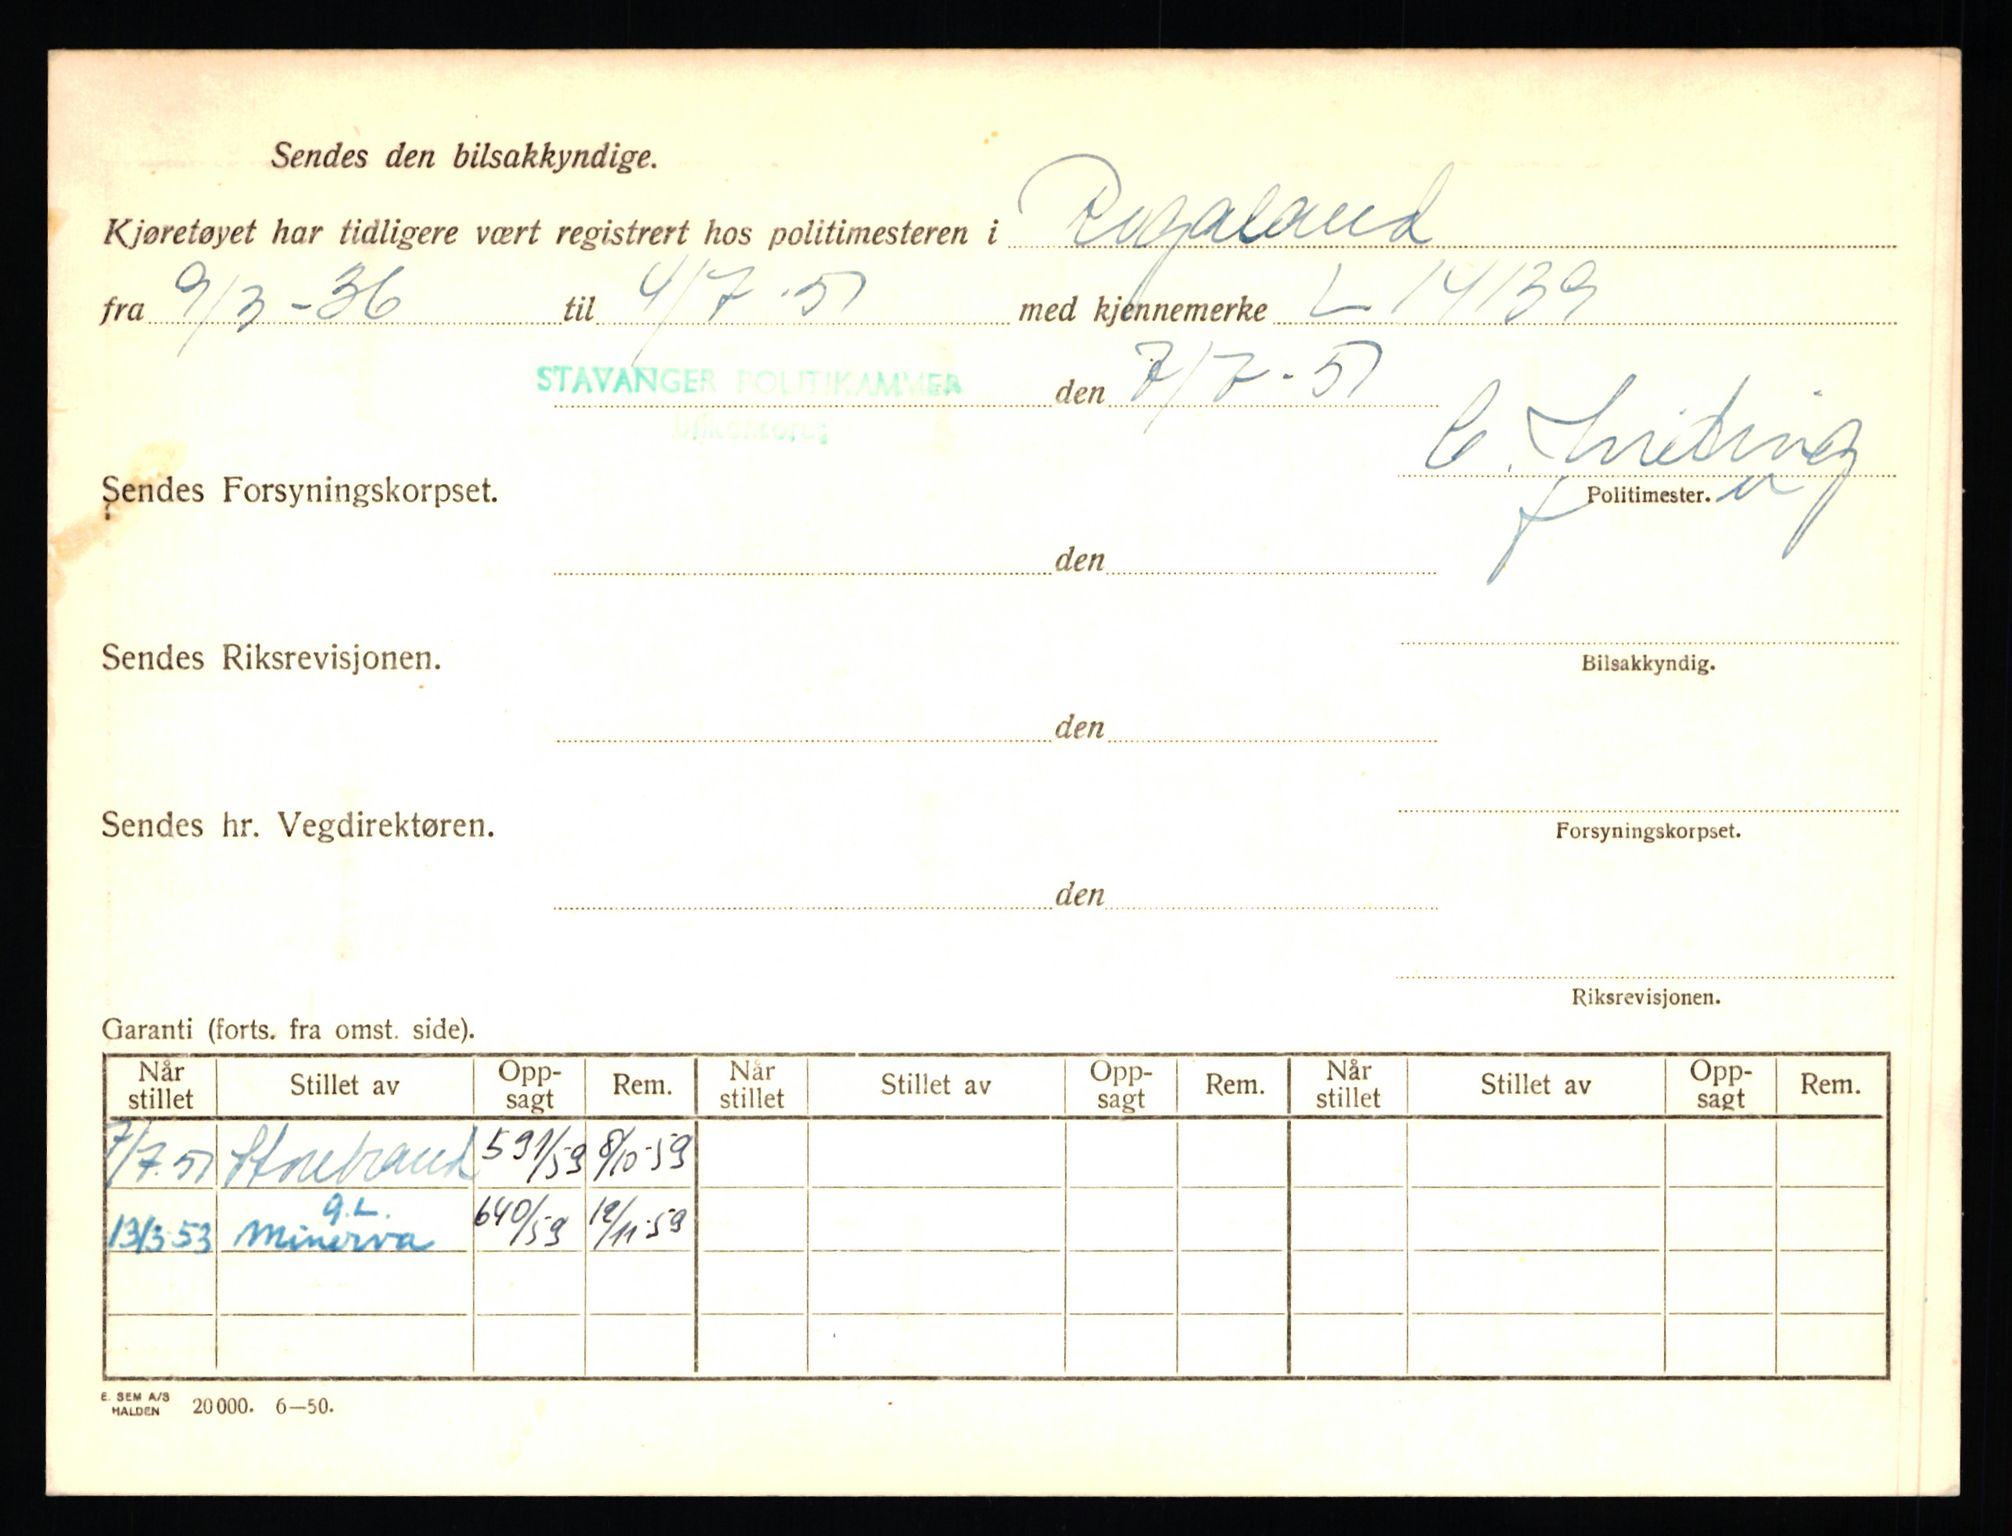 Sendes den bilsakkyndige.
Kjøretøyet har tidligere vært registrert hos politimesteren i Rogaland
fra 9/3-36 til 4/7.51 med kjennemerke L 14139
STAVANGER POLITIKAMMER den 7/7-51
Bilkontoret
Sendes Forsyningskorpset.
Politimester.
den
Sendes Riksrevisjonen.
Bilsakkyndig.
den
Sendes hr. Vegdirektøren.
Forsyningskorpset.
den
Riksrevisjonen.
Garanti (forts. fra omst. side).
Når stillet Stillet av Opp-sagt Rem. Når stillet Stillet av Opp-sagt Rem. Når stillet Stillet av Opp-sagt Rem.
7/7.51 Storebrand 591/59 8/10-59
13/3-53 G.L. Minerva 640/59 12/11-59
E. SEM A/S
HALDEN 20000. 6—50.